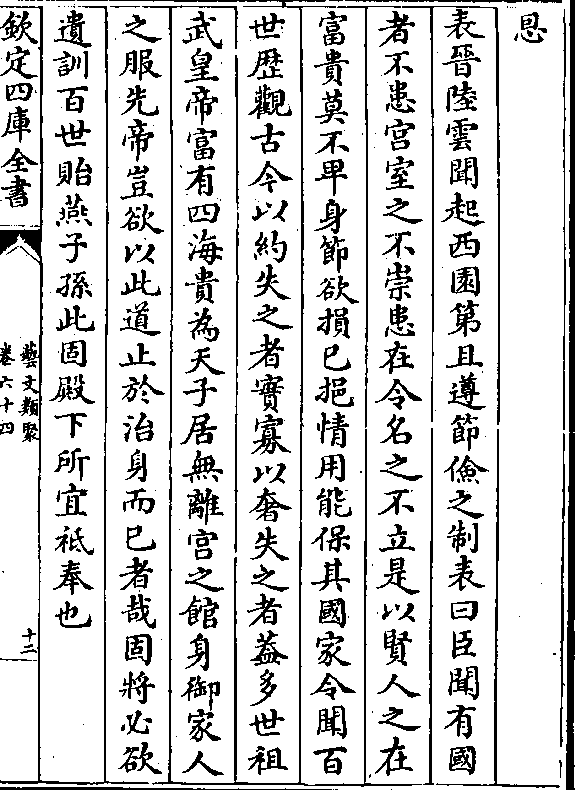 恩
表晉陸雲聞起西園第且遵節儉之制表曰臣聞有國
者不患宫室之不崇患在令名之不立是以賢人之在
富貴莫不卑身節欲損已挹情用能保其國家令聞百
世歴觀古今以約失之者實寡以奢失之者葢多世祖
武皇帝富有四海貴為天子居無離宫之館身御家人
之服先帝豈欲以此道止於治身而已者哉固將必欲
遺訓百世貽燕子孫此固殿下所宜祗奉也
欽定四庫全書
藝文類聚
卷六十四
十二